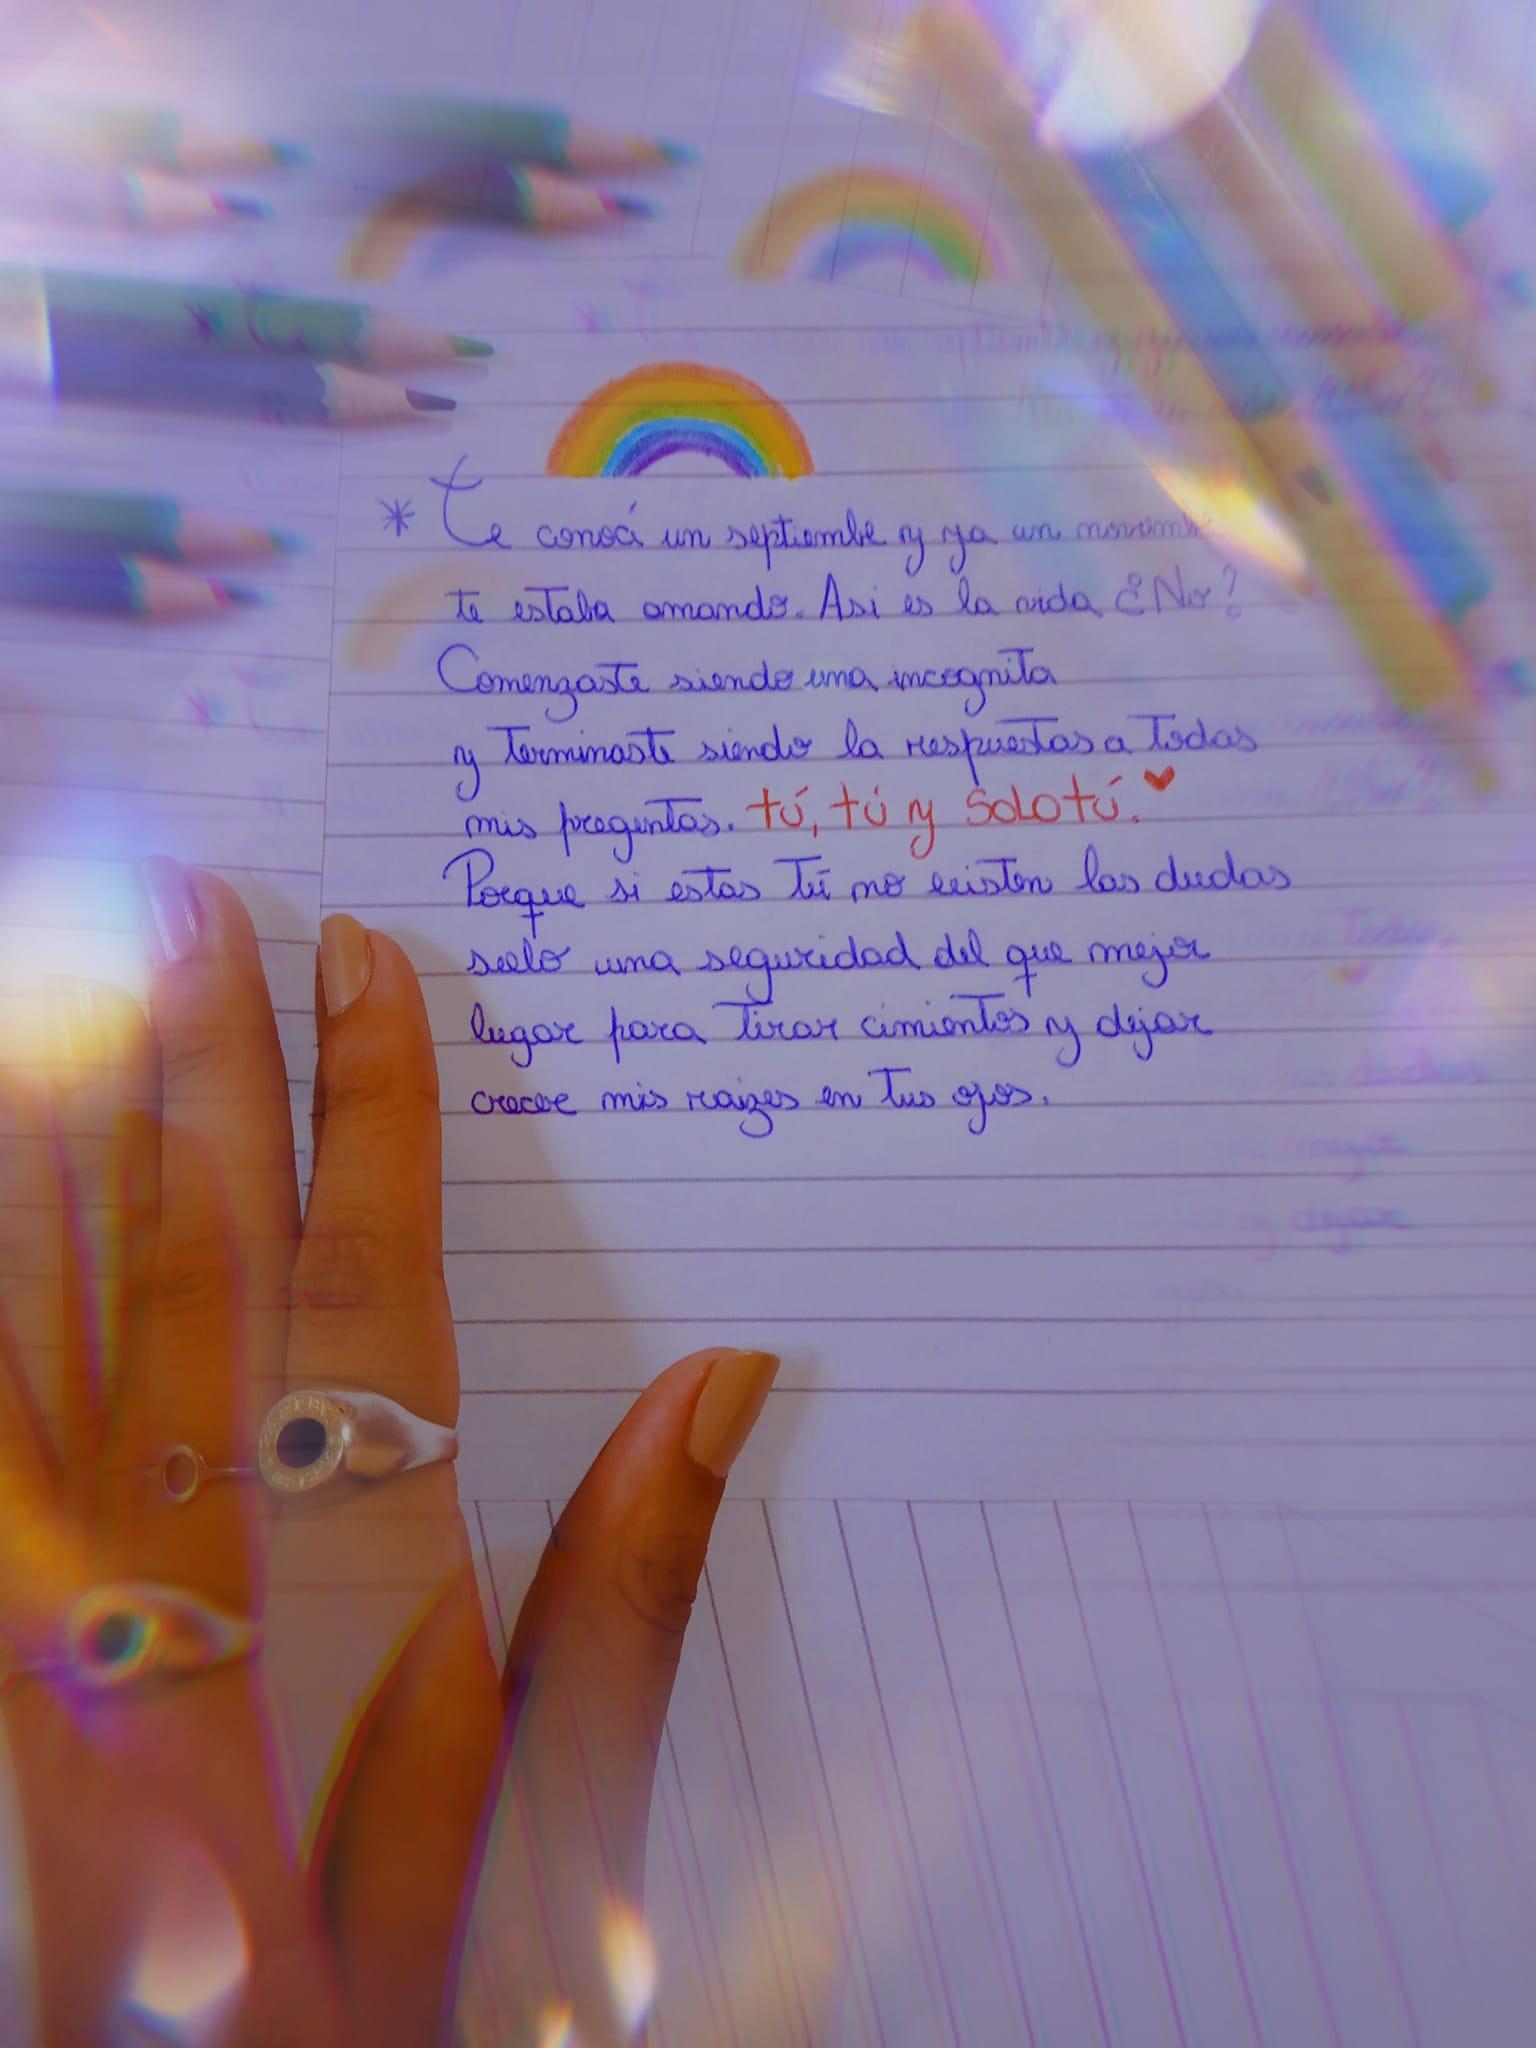 * Te conocí un septiembe y ya un noviemb
te estaba amando. Asi es la vida ¿No?
Comenzaste siendo una incognita
y terminaste siendo la respuestas a todas
mis pregentas. tú, tú y solo tú.
Porque si estas tú no existen las dudas
sólo una seguridad del que mejor
lugar para tirar cimientos y dejar
crecer mis raizes en tus ojos.